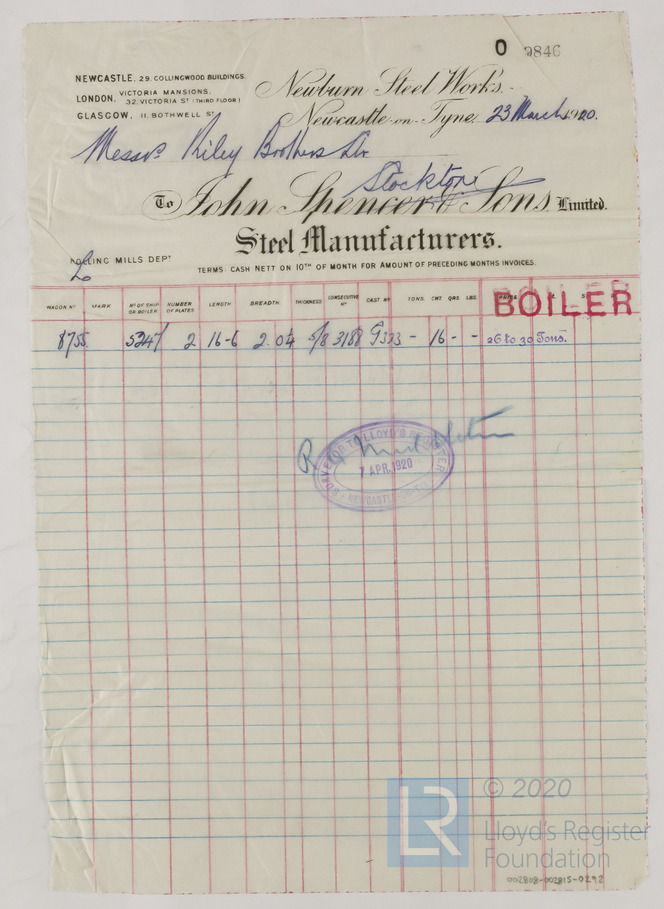 O 9846
NEWCASTLE, 29. COLLINGWOOD BUILDINGS.
LONDON, VICTORIA MANSIONS, 32, VICTORIA ST (THIRD FLOOR)
GLASGOW, 11. BOTHWELL ST
Newburn Steel Works.
Newcastle-on-Tyne, 23 March 1920.
Messrs Riley Brothers Ltd
Stockton
To John Spencer & Sons, Limited.
Steel Manufacturers.
ROLLING MILLS DEPT
TERMS: CASH NETT ON 10TH OF MONTH FOR AMOUNT OF PRECEDING MONTHS INVOICES.
BOILER
WAGON No MARK No OF SHIP OR BOILER NUMBER OF PLATES LENGTH BREADTH THICKNESS CONSECUTIVE No CAST No TONS. CWT. QRS. LBS.
8755 5247 2 16-6 2.04 5/8 3188 9323 - 16 - - 26 to 30 Tons.
SURVEYOR TO LLOYD'S REGISTER
7 APR. 1920
NEWCASTLE
LR
© 2020
Lloyd's Register
Foundation
002808-002815-0292